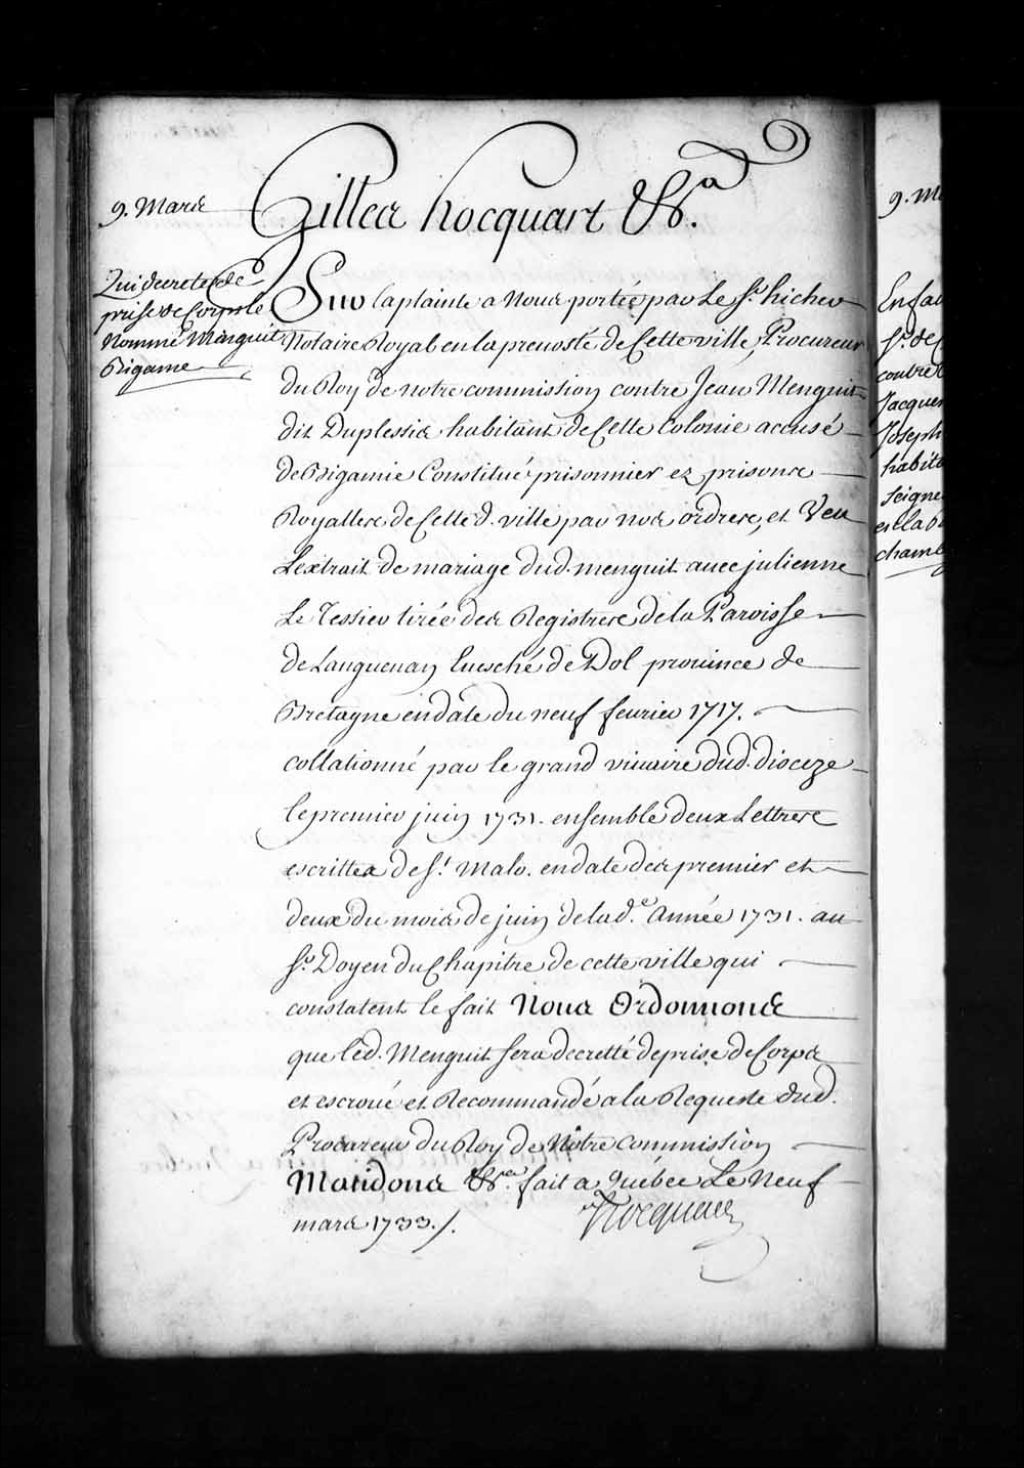 9. Mars
Gilles hocquart &ca.
Qui decrete de
prise de Corps le
Nommé Minguit
Bigame
Sur la plainte a Nous portée par Le Sr. hicher
Notaire Royal en la prevosté de Cette ville, Procureur
du Roy de notre commission contre Jean Menguit
dit Duplessis habitant de Cette Colonie accusé
de Bigamie Constitué prisonnier ez prisons
Royalles de Cette d. ville par nos ordres, et Veu
L'extrait de mariage dud. menguit avec julienne
Le Tessier tirée des Registres de la Paroisse
de Languenan Evesché de Dol province de
Bretagne en date du neuf fevrier 1717.
collationné par le grand vicaire dud. dioceze
le premier juin 1731. ensemble deux Lettres
escrittes de St. Malo. en date des premier et
deux du mois de juin de lad.e Année 1731. au
Sr. Doyen du Chapitre de cette ville qui
constatent le fait Nous Ordonnons
que led. Menguit sera decretté de prise de Corps
et escroüé et Recommandé a la Requeste dud.
Procureur du Roy de Notre commission
Mandons &ca. fait a Québec Le Neuf
mars 1733./.
Hocquart
9. M
En fa
Sr. de
contre
Jacque
Joseph
habit
Seigne
et la
chamb